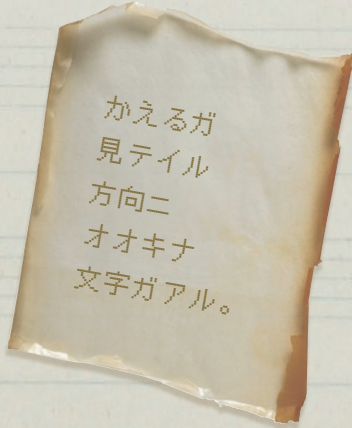 かえるガ
見テイル
方向ニ
オオキナ
文字ガアル。